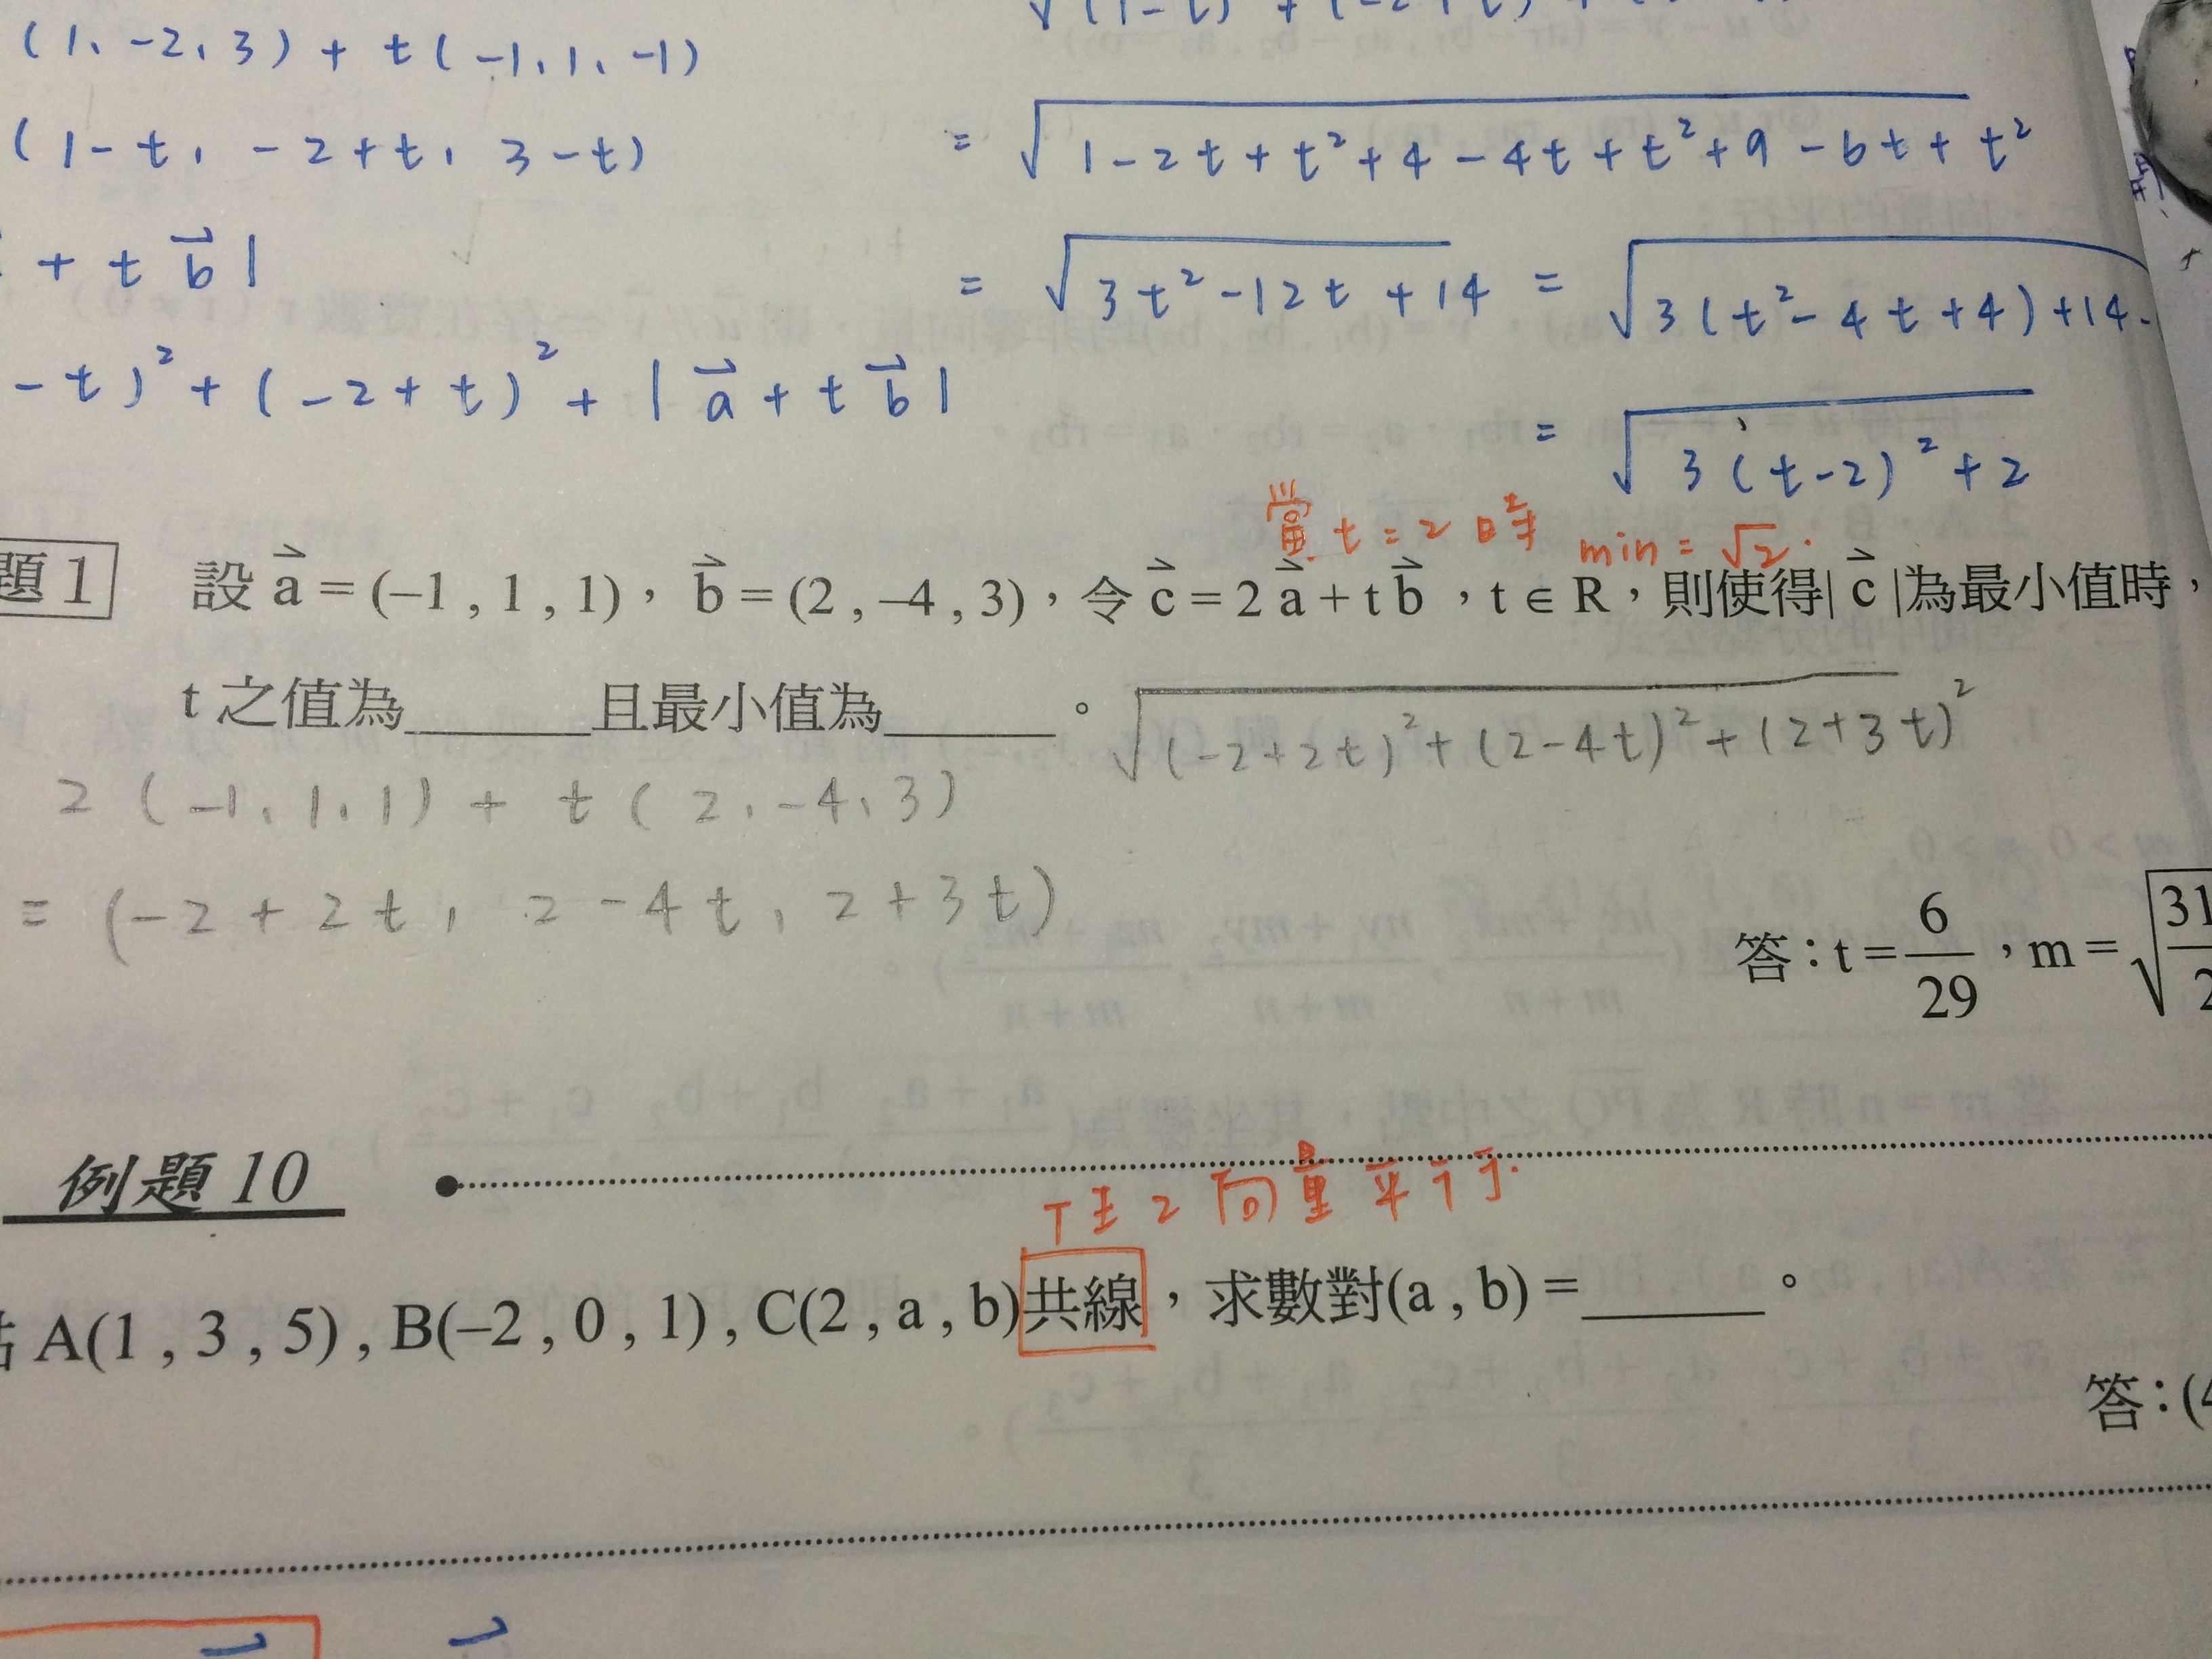 (1, -2, 3) + t(-1, 1, -1)
(1-t, -2+t, 3-t)
+ t b⃗ |
-t)² + (-2+t)² + | a⃗ + t b⃗ |
= √(1-2t+t²+4-4t+t²+9-6t+t²)
= √(3t²-12t+14) = √(3(t²-4t+4)+14-
= √(3(t-2)²+2)
當 t=2 時 min=√2.
題1 設 a⃗ = (–1 , 1 , 1)， b⃗ = (2 , –4 , 3)，令 c⃗ = 2 a⃗ + t b⃗ ，t ∈ R，則使得| c⃗ |為最小值時，
t 之值為______且最小值為______。
√((-2+2t)²+(2-4t)²+(2+3t)²)
2 (-1, 1, 1) + t ( 2, -4, 3)
= (-2+2t, 2-4t, 2+3t)
答：t = 6/29 ，m = √31
例題 10
任2向量平行.
A(1 , 3 , 5) , B(–2 , 0 , 1) , C(2 , a , b)共線，求數對(a , b) = ______。
答：(4